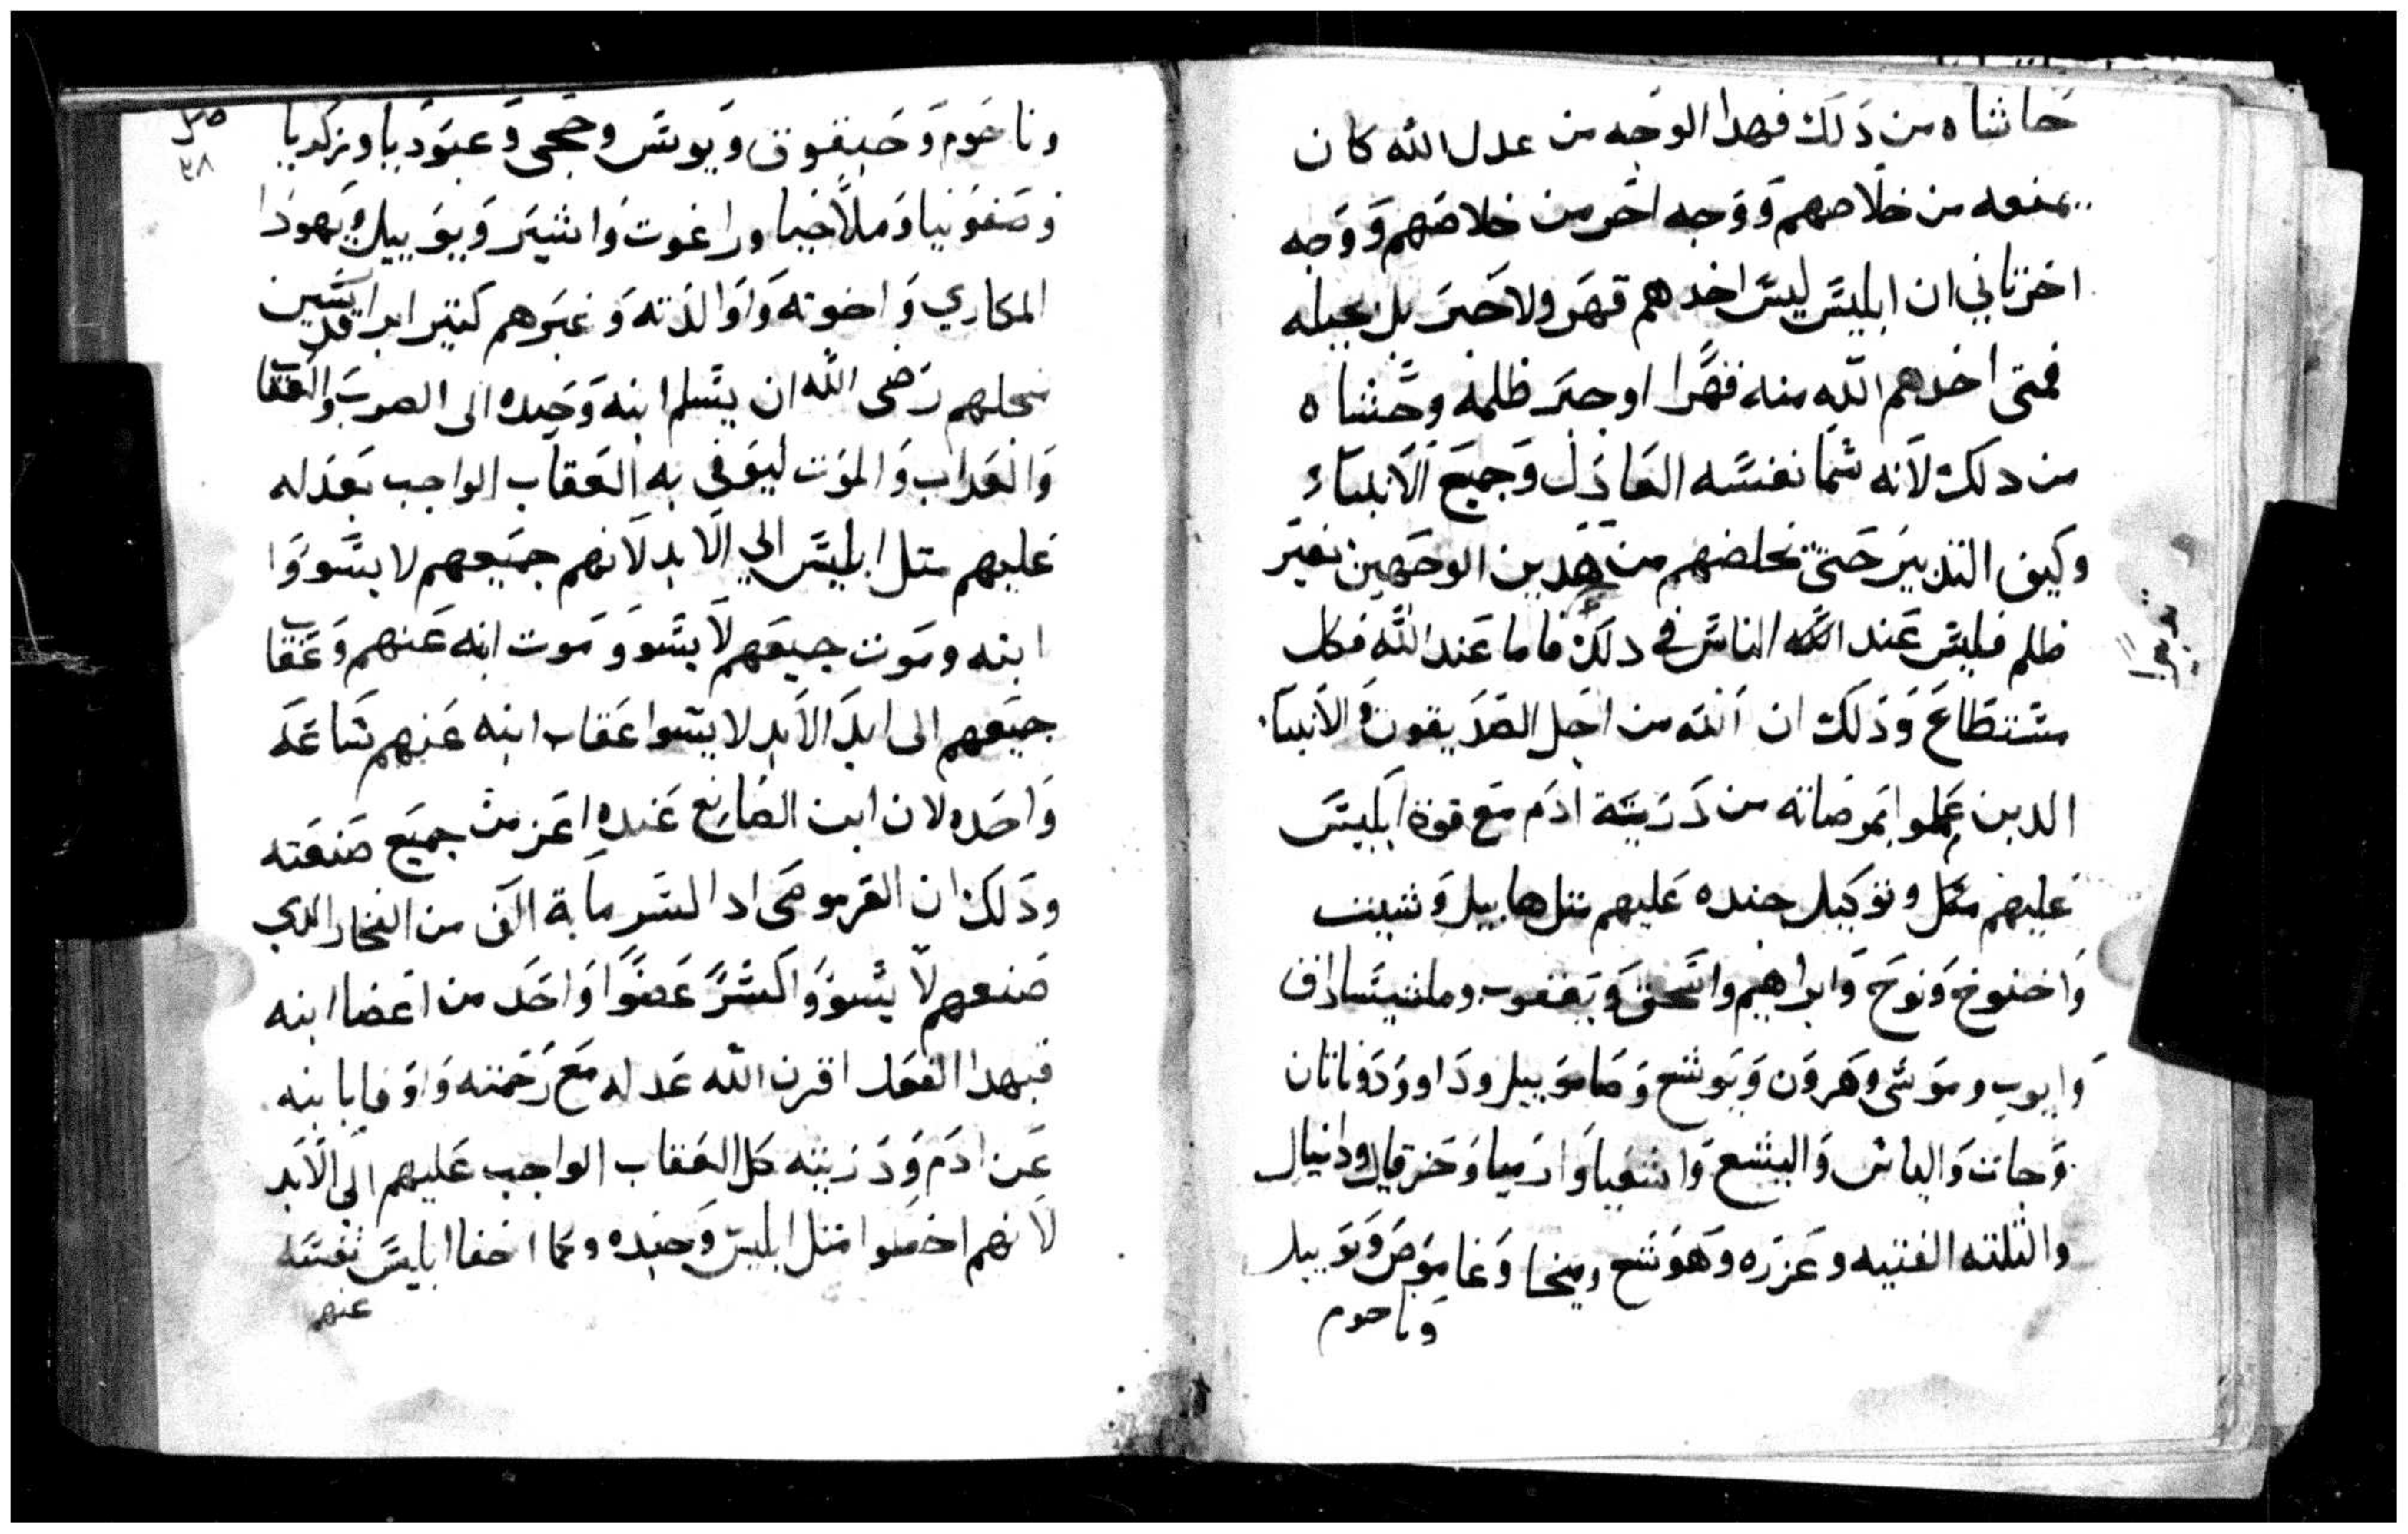 حاشاه من ذلك فهدا الوجه من عدل الله كان
يمنعه من خلاصهم ووجه اخر من خلاصهم ووجه
اخر تاني ان ابليس ليس اخدهم قهر ولا جبر بل بحيله
فمتى اخدهم الله منه قهرا او جبر ظلمه وحشاه
من دلك لانه سما نفسه العادل وجميع الانبياء
وكيف التدبير حتى نخلصهم من هدين الوجهين بغير
ظلم فليس عند الناس في دلك فاما عند الله فكل
مستطاع وذلك ان الله من اجل الصديقون والانبياء
الدين عملوا بمرضاته من درية ادم مع قوة ابليس
عليهم وتوكيل جنده عليهم متل هابيل وشيت
واخنوخ ونوح وابراهيم واسحق ويعقوب وملشيساداف
وايوب وموسى وهرون ويوشع وصامويل وداوود وناتان
وجات والياس واليشع واشعيا وارميا وحزقيال ودانيال
والتلته الفتيه وعزره وهوشع وميخا وعاموص ويوييل
وناحوم
وناحوم وحبقوق ويونس وحجى وعبوديا وزكريا
وصفونيا وملاخيا وراعوت واشير ويوييل ويهودا
المكاري واخوته واوالدته وغيرهم كتير ابرار قديسين
من اجلهم رضى الله ان يسلم ابنه وحيده الى الصرب والعقاب
والعداب والموت ليوفي به العقاب الواجب بعدله
عليهم متل ابليس الي الابد لانهم جميعهم لا يسووا
ابنه وموت جميعهم لا يسوو موت ابنه عنهم وعقاب
جميعهم الى ابد الابد لا يسوا عقاب ابنه عنهم ساعه
واحده لان ابن الصانع عنده اعز من جميع صنعته
وذلك ان القرموصى ادا كسر ماية الف من الفخار الدي
صنعهم لا يسووا كسر عضوا واحد من اعضا ابنه
فبهدا الفعل اقرن الله عدله مع رحمته واوفا بابنه
عن ادم ودريته كل العقاب الواجب عليهم الى الابد
لانهم اخطوا متل ابليس وجنده وكما اخفا ابليس نفسه
عنهم